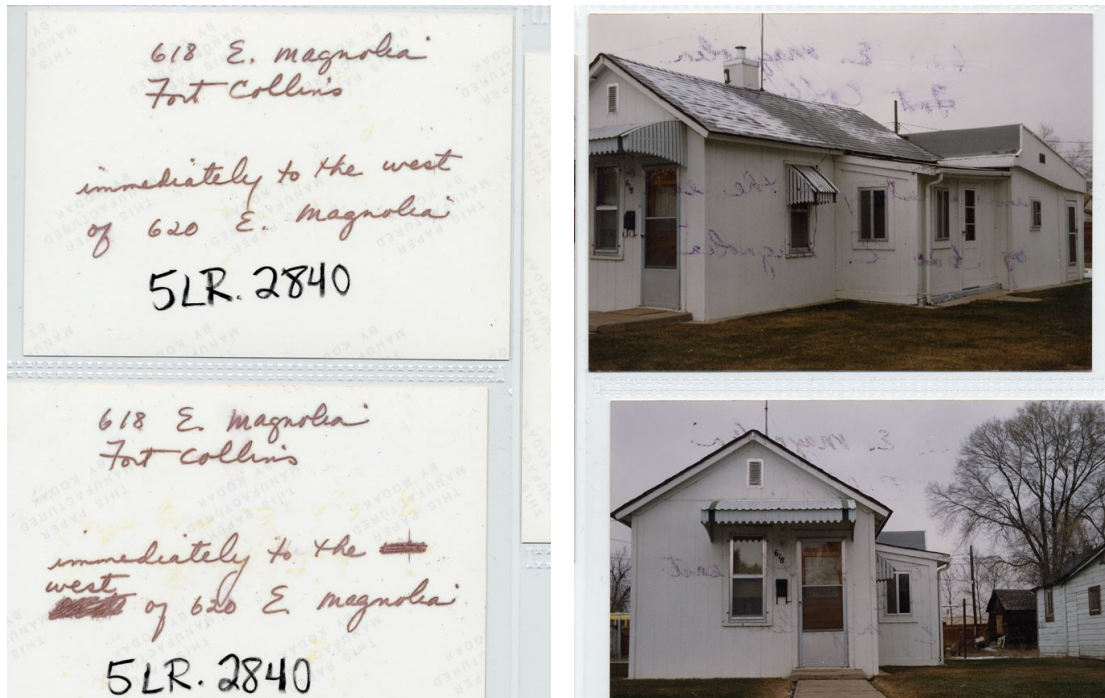 618 E. Magnolia
Fort Collins
immediately to the west
of 620 E. Magnolia
5LR.2840
618 E. Magnolia
Fort Collins
immediately to the
west
of 620 E. Magnolia
5LR.2840
THIS PAPER
MANUFACTURED
BY KODAK
618
618